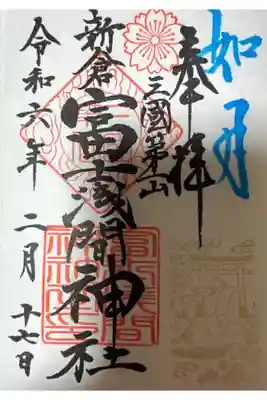 如月
奉拝
三國第一山
新倉
富士浅間神社
令和六年
二月
十七日